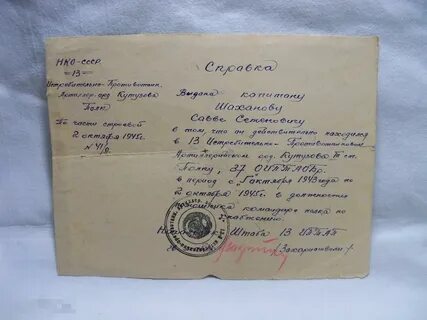 НКО-СССР
13
Истребительно-Противотанк.
Артиллер. орд. Кутузова
Полк
По части строевой
2 октября 1945г.
Справка
Выдана капитану
Шаханову
Савве Семеновичу
в том, что он действительно находился
в 13 Истребительно-Противотанковом
Артиллерийском орд. Кутузова
Полку, 37 ОИПТАБр.
в период с октября 1943 года по
2 октября 1945г. в должности
командира полка по
Штаба 13 ИПТАП